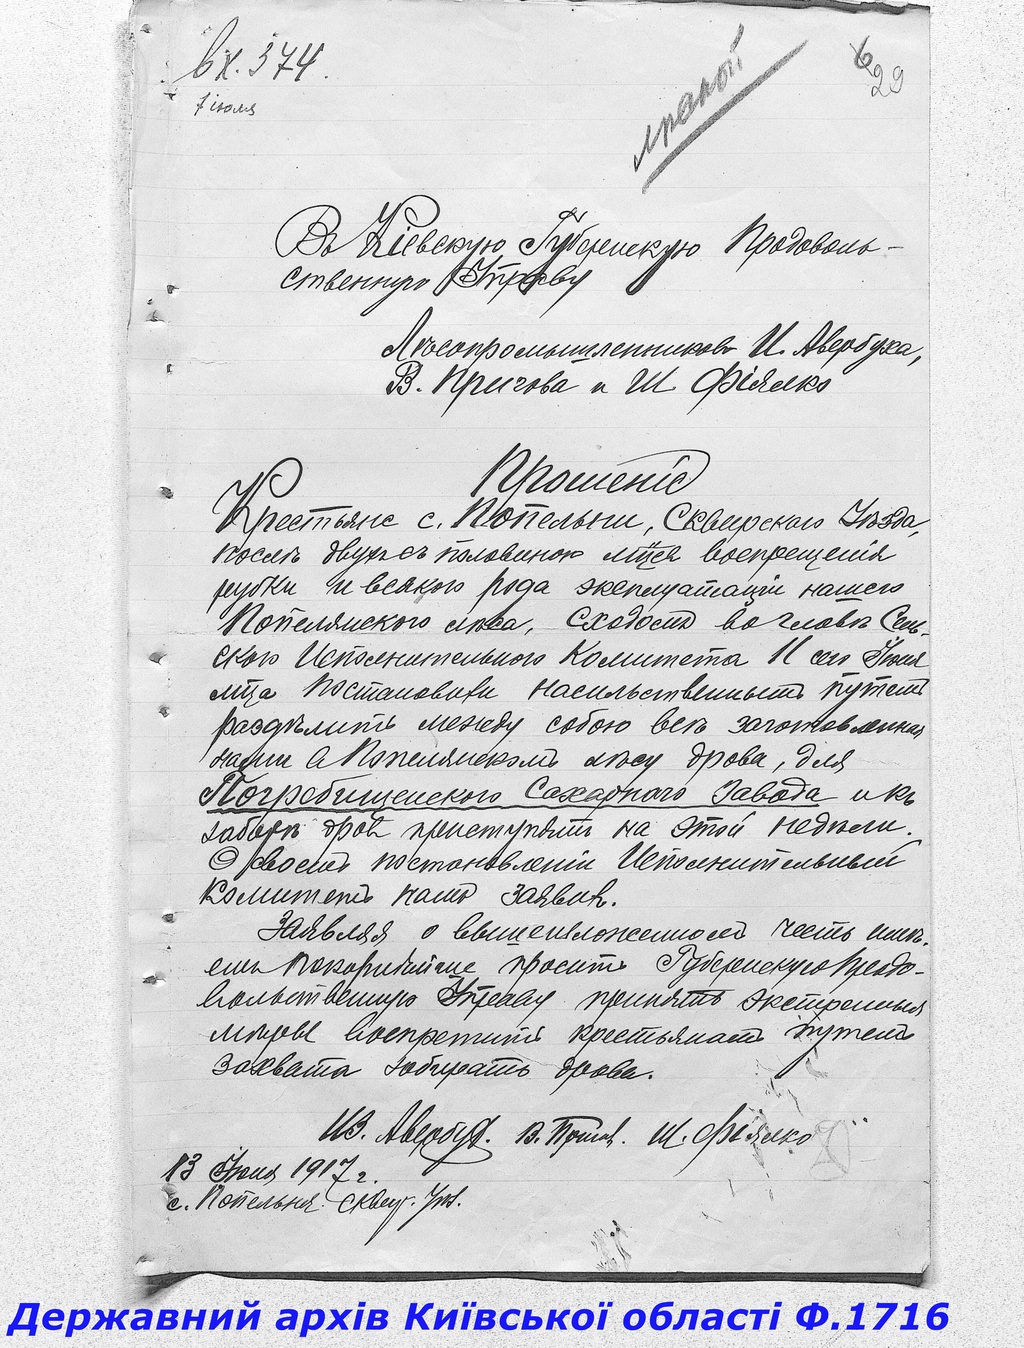 вх. 374.
7 іюля
6
29
Въ Кіевскую Губернскую Продоволь-
ственную Управу
Лѣсопромышленниковъ И. Авербуха,
В. Пригова и Ш Фіялко
Прошеніе
Крестьяне с. Попельни, Сквирскаго Уѣзда,
послѣ двухъ съ половиною мѣсяца воспрещенія
рубки и всякого рода эксплуатаціи нашего
Попелянского лѣса, сходомъ во главѣ Сель-
ского Исполнительного Комитета 11 сего Іюня
мѣца постановили насильственнымъ путемъ
раздѣлить между собою всѣ заготовленныя
нами в Попелянскомъ лѣсу дрова, для
Погребищенского Сахарного Завода и къ
заборѣ дров приступить на этой недѣли.
О своемъ постановленіи Исполнительный
Комитетъ намъ заявил.
Заявляя о вышеизложенномъ честь имѣ-
емъ покорнѣйше просить Губернскую Продо-
вольственную Управу принять экстренныя
мѣры воспретить крестьянамъ путемъ
захвата забирать дрова.
И. Авербух. В. Пригов. Ш. Фіялко
13 Іюня 1917 г.
с. Попельня Сквир. Уѣз.
Державний архів Київської області Ф.1716